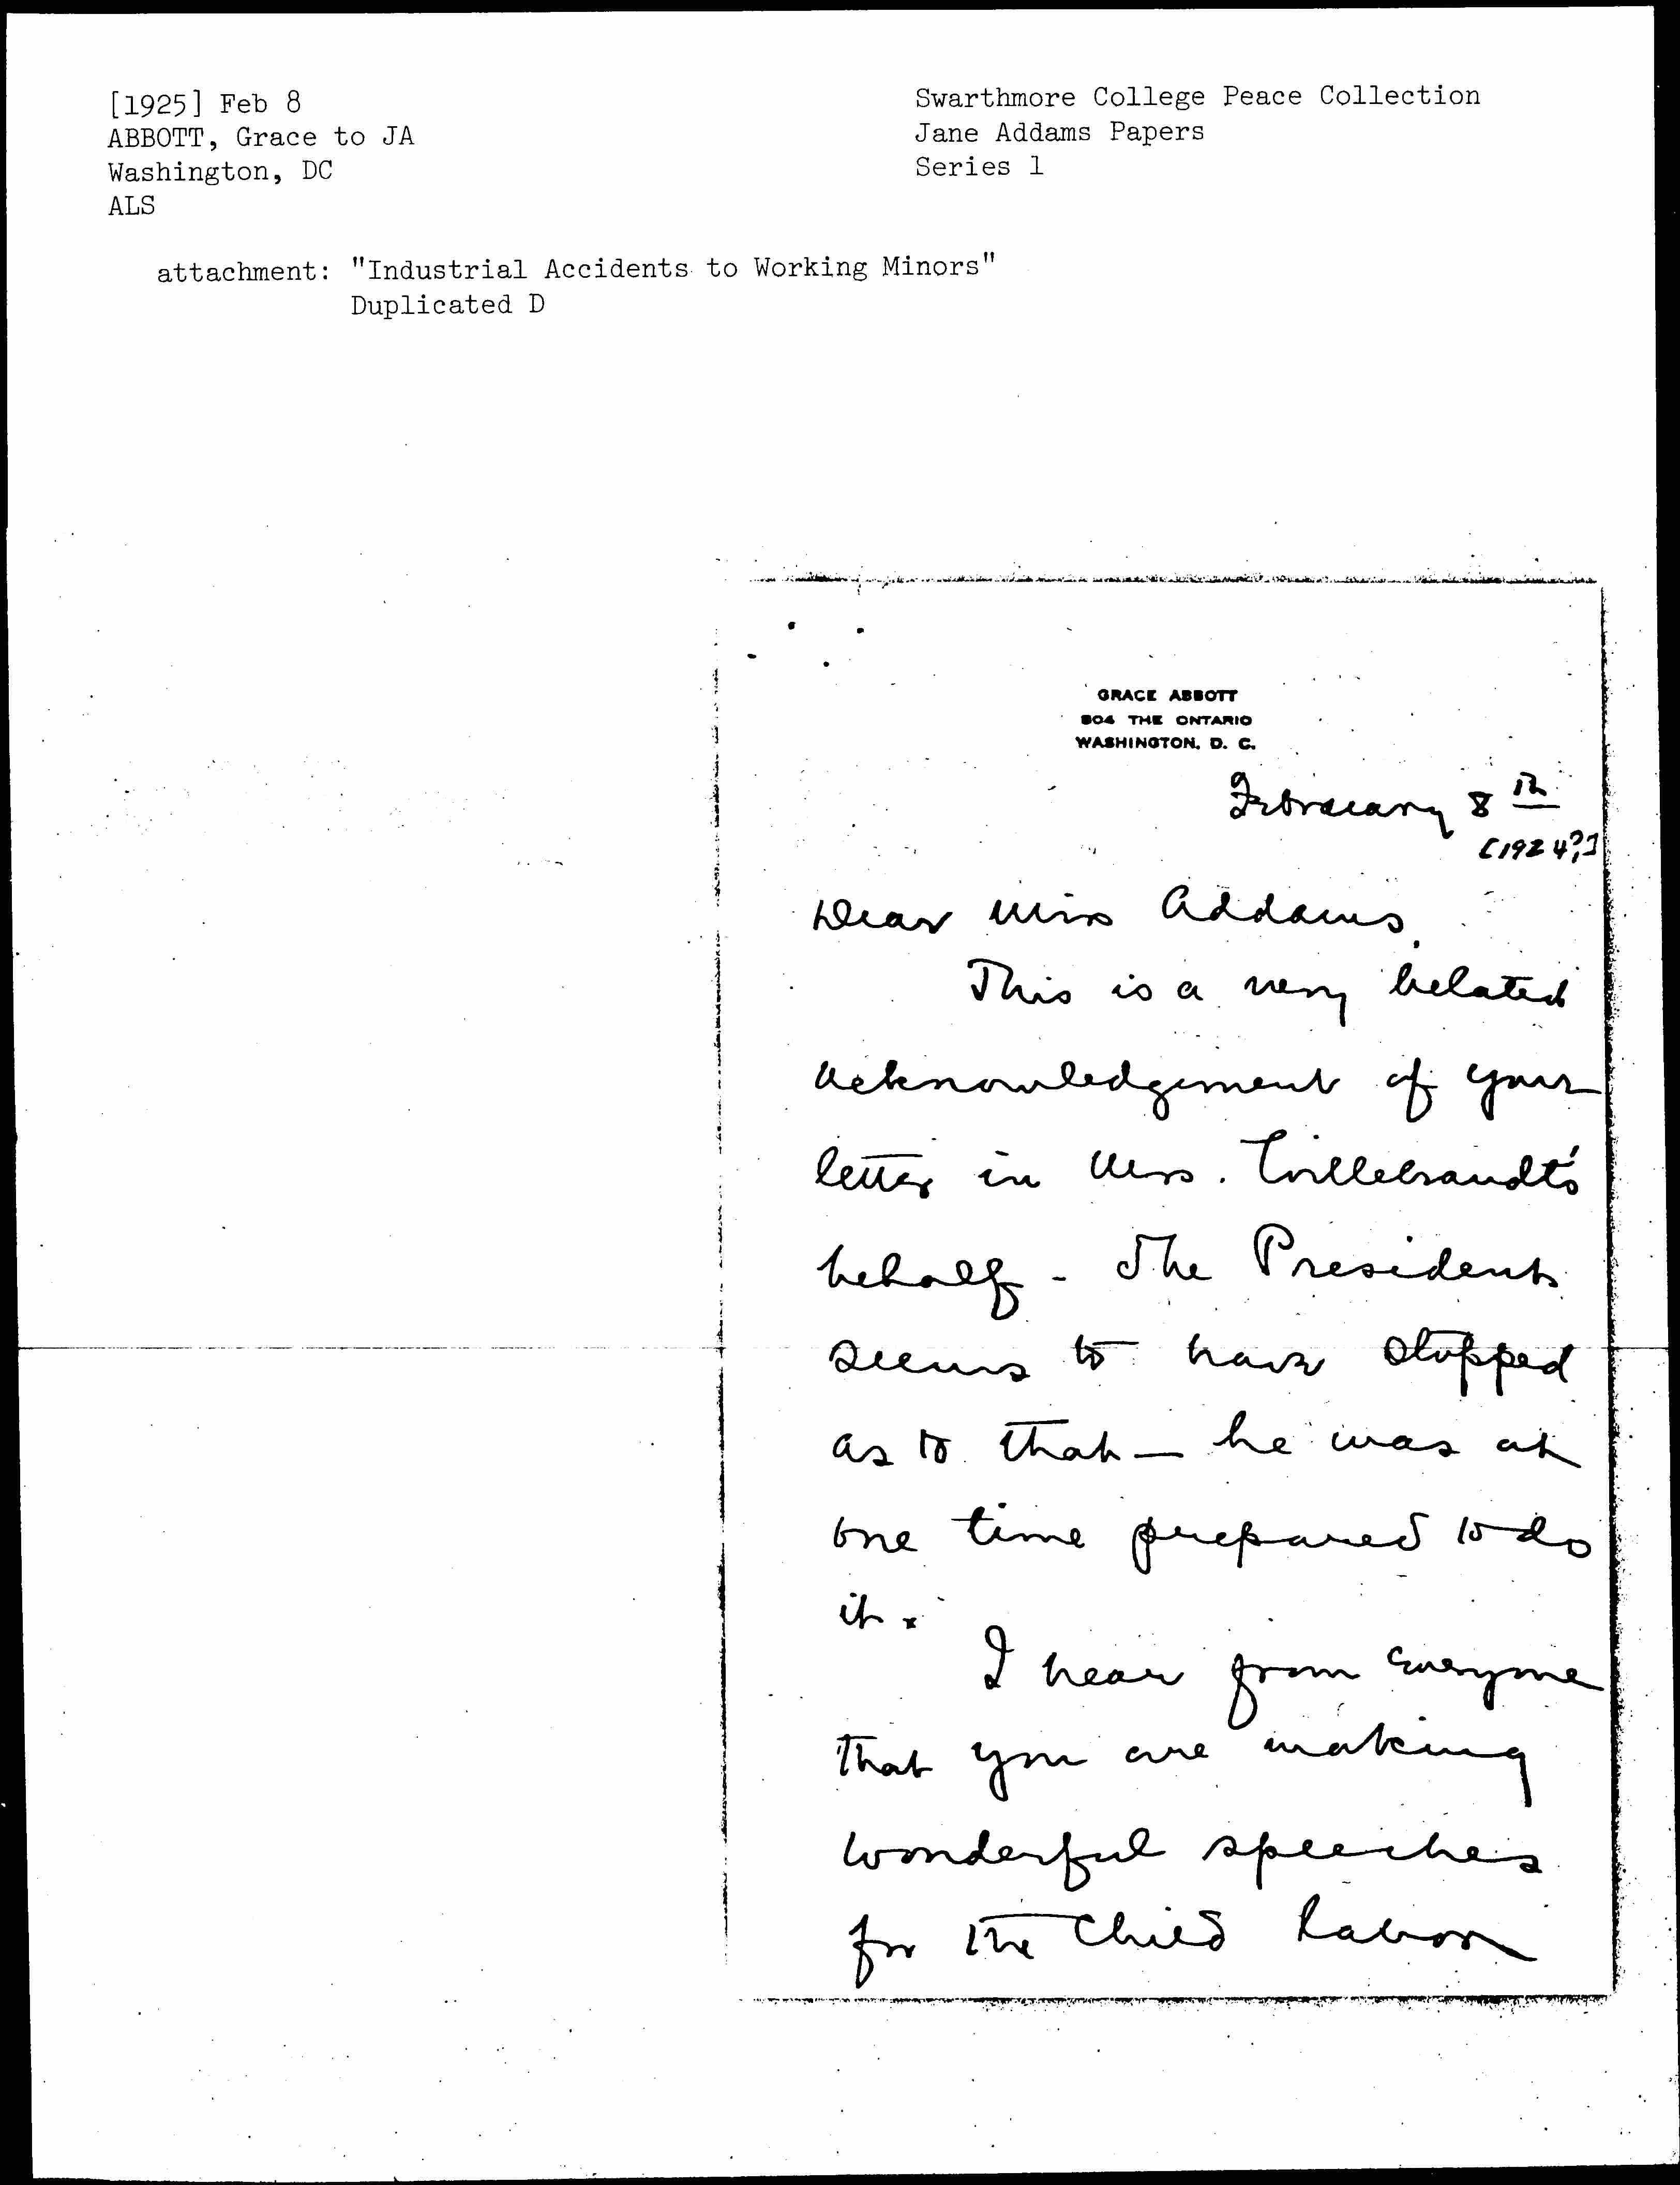 [1925] Feb 8
ABBOTT, Grace to JA
Washington, DC
ALS
attachment: "Industrial Accidents to Working Minors"
Duplicated D
Swarthmore College Peace Collection
Jane Addams Papers
Series 1
GRACE ABBOTT
804 THE ONTARIO
WASHINGTON, D. C.
February 8th
[1924?]
Dear Miss Addams,
This is a very belated
acknowledgement of your
letter in Mrs. Willebrandt's
behalf - The President
seems to have stopped
as to that - he was at
one time prepared to do
it.
I hear from everyone
that you are making
wonderful speeches
for the Child Labor